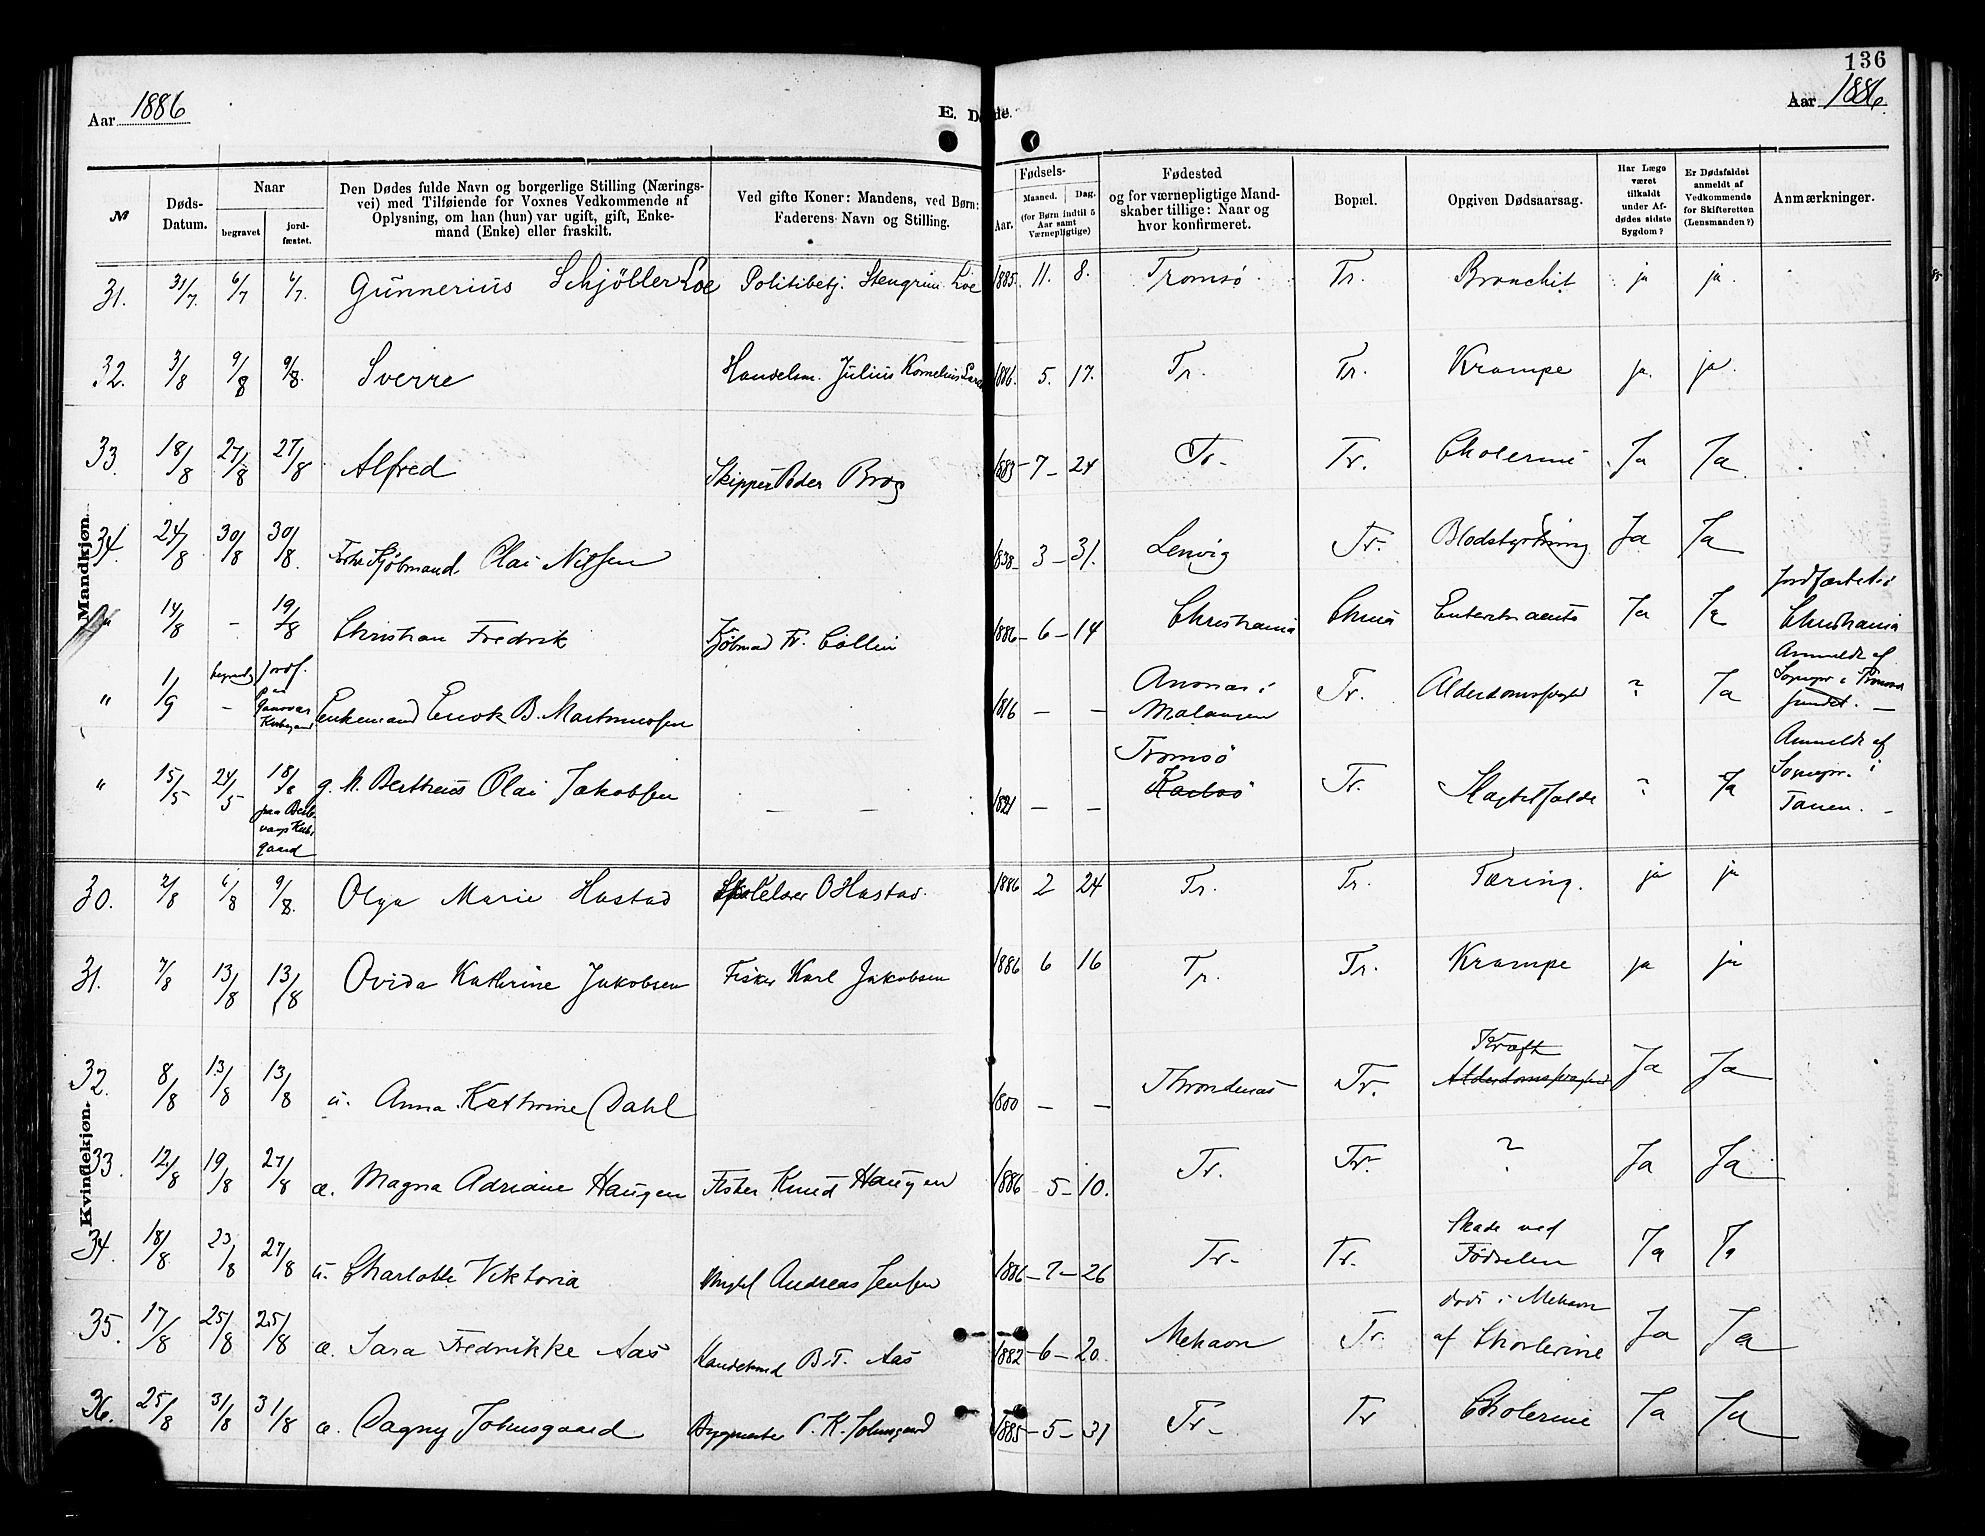 136
Aar 1886
E. Døde.
Aar 1886.
№
Døds-Datum.
Naar
begravet
jord-fæstet.
Den Dødes fulde Navn og borgerlige Stilling (Nærings-
vei) med Tilføiende for Voxnes Vedkommende af
Oplysning, om han (hun) var ugift, gift, Enke-
mand (Enke) eller fraskilt.
Ved gifte Koner: Mandens, ved Børn:
Faderens Navn og Stilling.
Fødsels-
Aar.
Maaned.
Dag.
(for Børn indtil 5
Aar samt
Værnepligtige)
Fødested
og for værnepligtige Mand-
skaber tillige: Naar og
hvor konfirmeret.
Bopæl.
Opgiven Dødsaarsag.
Har Læge
været
tilkaldt
under Af-
dødes sidste
Sygdom?
Er Dødsfaldet
anmeldt af
Vedkommende
for Skifteretten
(Lensmanden?)
Anmærkninger.
Mandkjøn.
31. 31/7 6/7 6/7. Gunnerius Schjöller Loe Politibetj. Stengrim Loe 1885. 11. 8. Tromsö. Tr. Bronchit ja ja.
32. 3/8 9/8 9/8. Sverre Handelsm. Julius Kornelius 1886. 5. 17. Tr. Tr. Krampe ja. ja.
33. 18/8 27/8 27/8 Alfred Skipper Peder Brox 1883 - 7 - 24 Tr. Tr. Cholerine Ja Ja
34. 24/8 30/8 30/8. Kjöbmand Olai Nilsen 1838 - 3 - 31. Lenvig Tr. Blodstyrtning Ja Ja
14/8 - 19/8 Christian Fredrik Kjöbmad Fr. Collin 1886 - 6 - 14 Christiania Chnia Ja Ja Jordfæstet i
Christiania
" 1/9 - Jordf.
paa
Kirkegaard Enkemand Enok B. Martinussen 1816 - - i
Malangen Tr. Alderdomssvaghed ? Ja Anmeldt af
Sognepr. i Tromsö
sundet. -
" 15/5 24/5 18/8
paa
Kirke
gaard g. M. Bertheus Olai Jakobsen - - 1821 - - Tromsö
Karlsö Tr. Slagtilfælde ? Ja Anmeldt af
Sognepr. i
Tanen. -
Kvindekjøn.
30. 2/8 6/8 9/8. Olga Marie Hastad O Hastad. 1886 2 24 Tr. Tr. Tæring. ja ja
31. 7/8 13/8 13/8 Ovida Kathrine Jakobsen Fisker Karl Jakobsen 1886 6 16 Tr. Tr. Krampe ja ja
32. 8/8 13/8 13/8 u. Anna Kathrine Dahl 1800 - - Throndenæs Tr. Kræft
Alderdomssvaghed Ja Ja
33. 12/8 19/8 27/8 æ. Magna Adriane Haugen Fisker Knud Haugen 1886 - 5 - 10. Tr. Tr. ? Ja Ja
34. 18/8 23/8 27/8 u. Charlotte Viktoria Andreas Jensen 1886 - 7 - 26 Tr. Tr. Skade ved
Födselen Ja Ja
35. 17/8 25/8 25/8 æ. Sara Fredrikke Aas Handelsmd B. T. Aas 1882 - 6 - 20. Mehavn Tr. död i Mehavn
af Cholerine Ja Ja
36. 25/8 31/8 31/8 æ. Dagny Johnsgaard Bygmester P. K. Johnsgaard 1885 - 5 - 31 Tr. Tr Cholerine Ja Ja